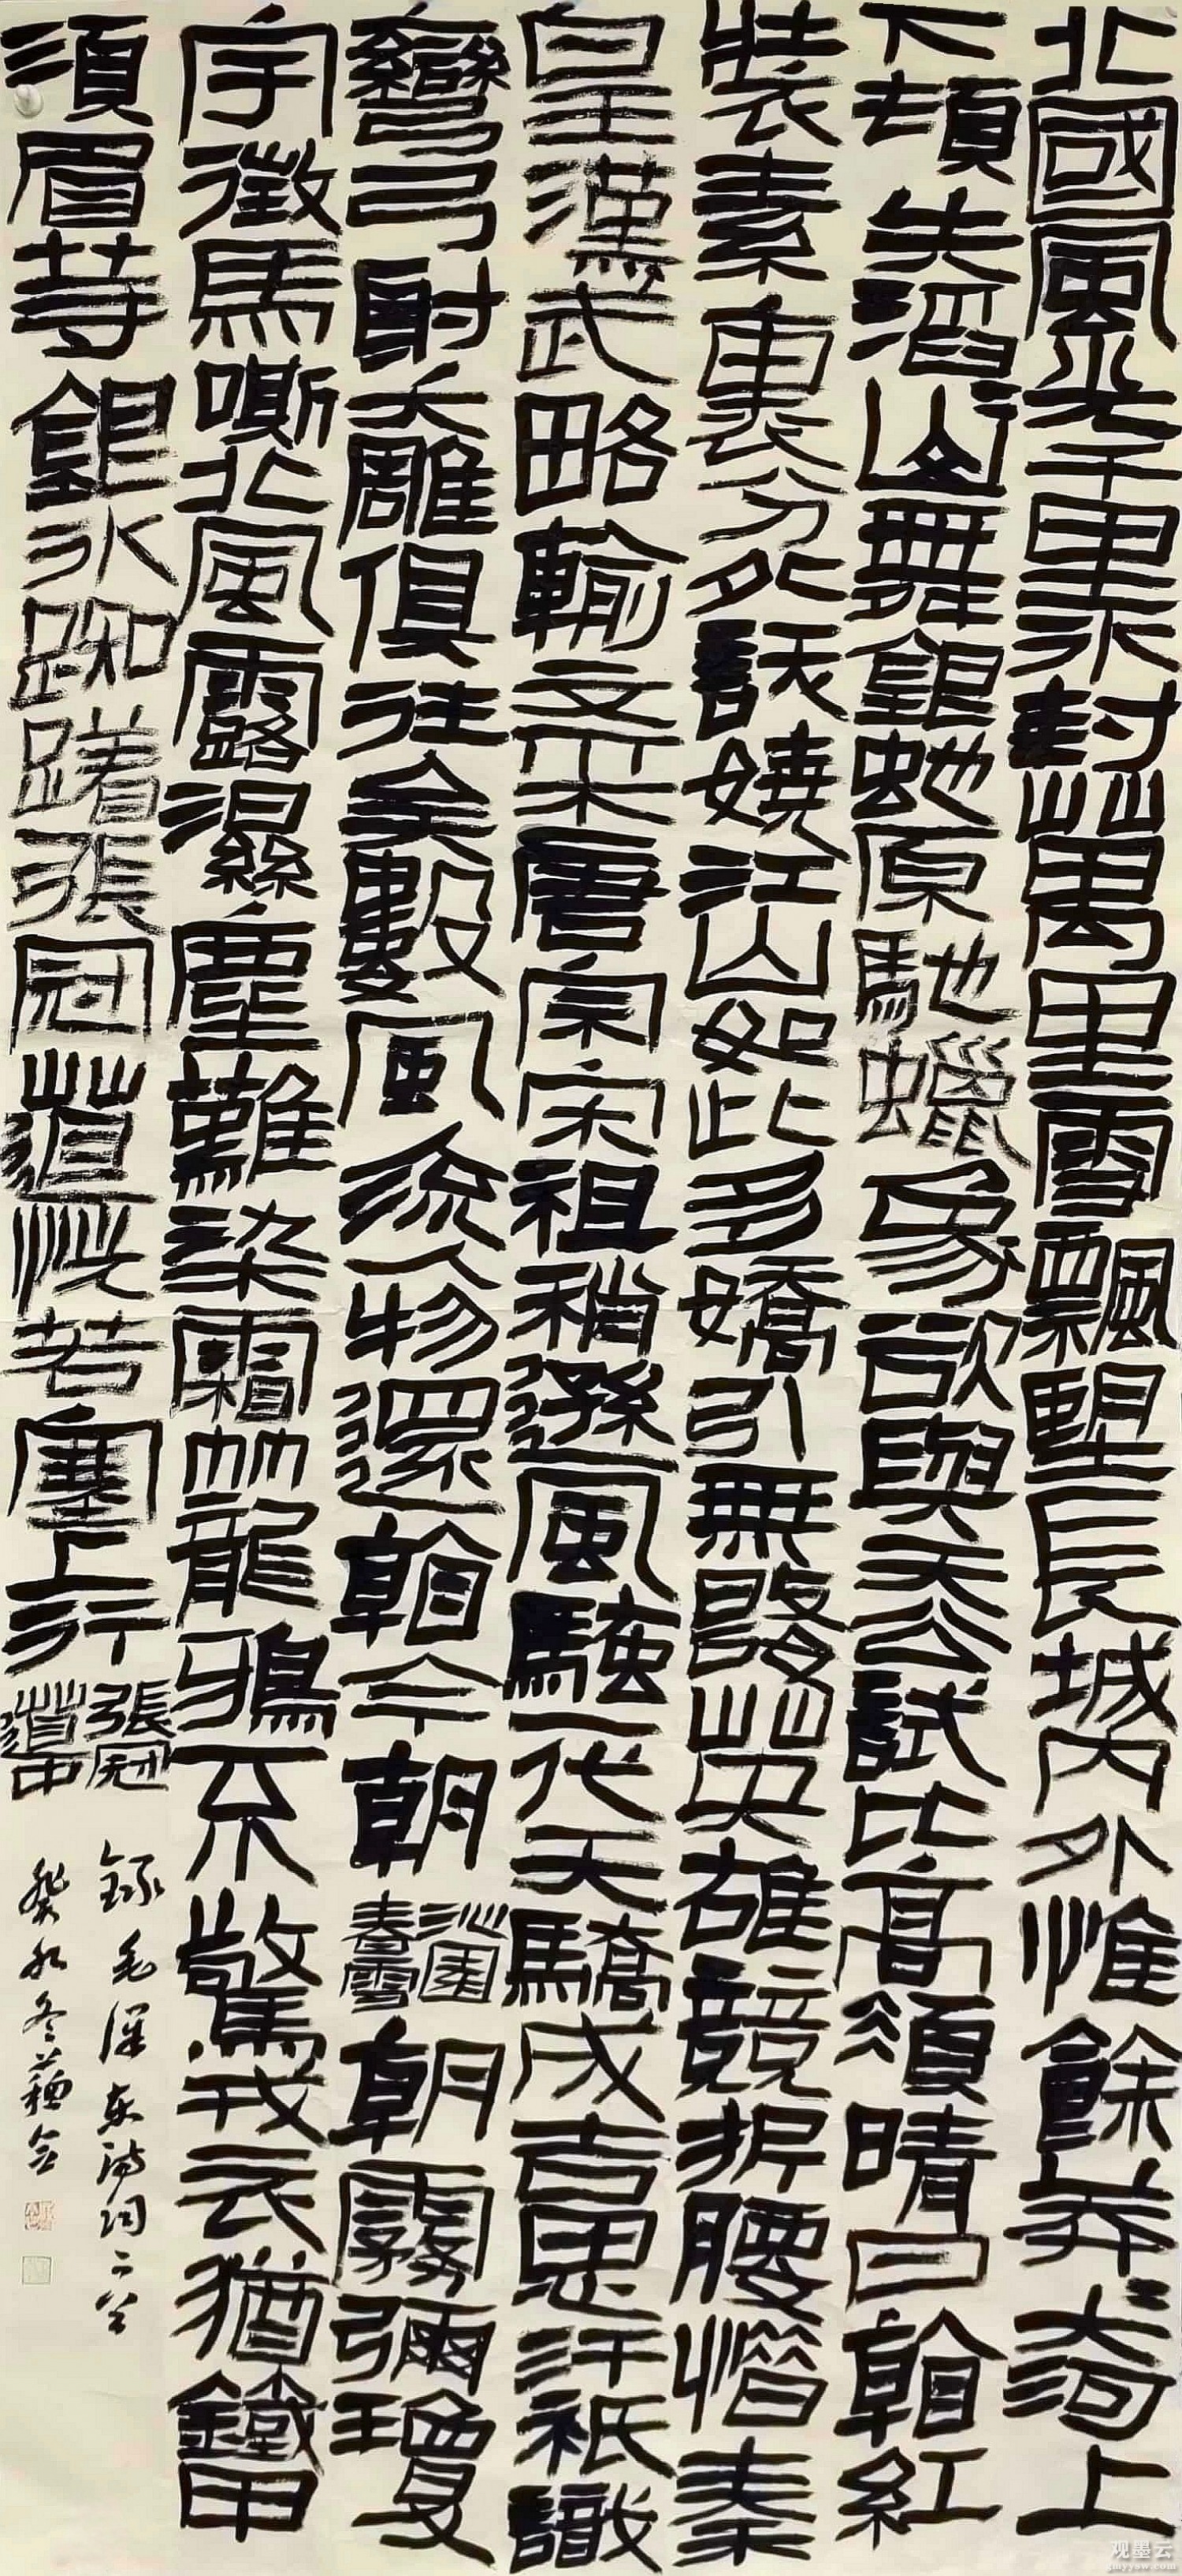 北國風光千里冰封萬里雪飄望長城內外惟餘莽莽大河上
下頓失滔滔山舞銀蛇原馳蠟象欲與天公試比高須晴日看紅
裝素裹分外訞嬈江山如此多嬌引無數英雄競折腰惜秦
皇漢武略輸文采唐宗宋祖稍遜風騷一代天驕成吉思汗祇識
彎弓射大雕俱往矣數風流人物還看今朝
沁園
春雪
朝霧彌瓊
宇徵馬嘶北風露濕塵難染霜籠鴉不驚戎衣猶鐵甲
須眉等銀冰踟躇張冠道恍若塞上行
張冠
道中
錄毛澤東詩詞二首
癸卯冬
观墨云
gmyysw.com